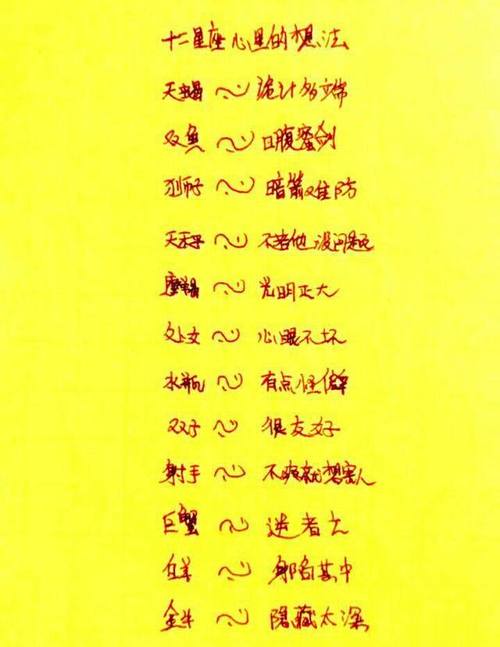 十二星座心里的想法
天蝎~诡计多
双鱼~口腹蜜剑
狮子~暗箭难防
天秤~不若他没问题
摩羯~光明正大
处女~心眼不坏
水瓶~有点怪僻
双子~很友好
射手~不爽就想害人
巨蟹~逆者亡
白羊~身陷其中
金牛~隐藏太深